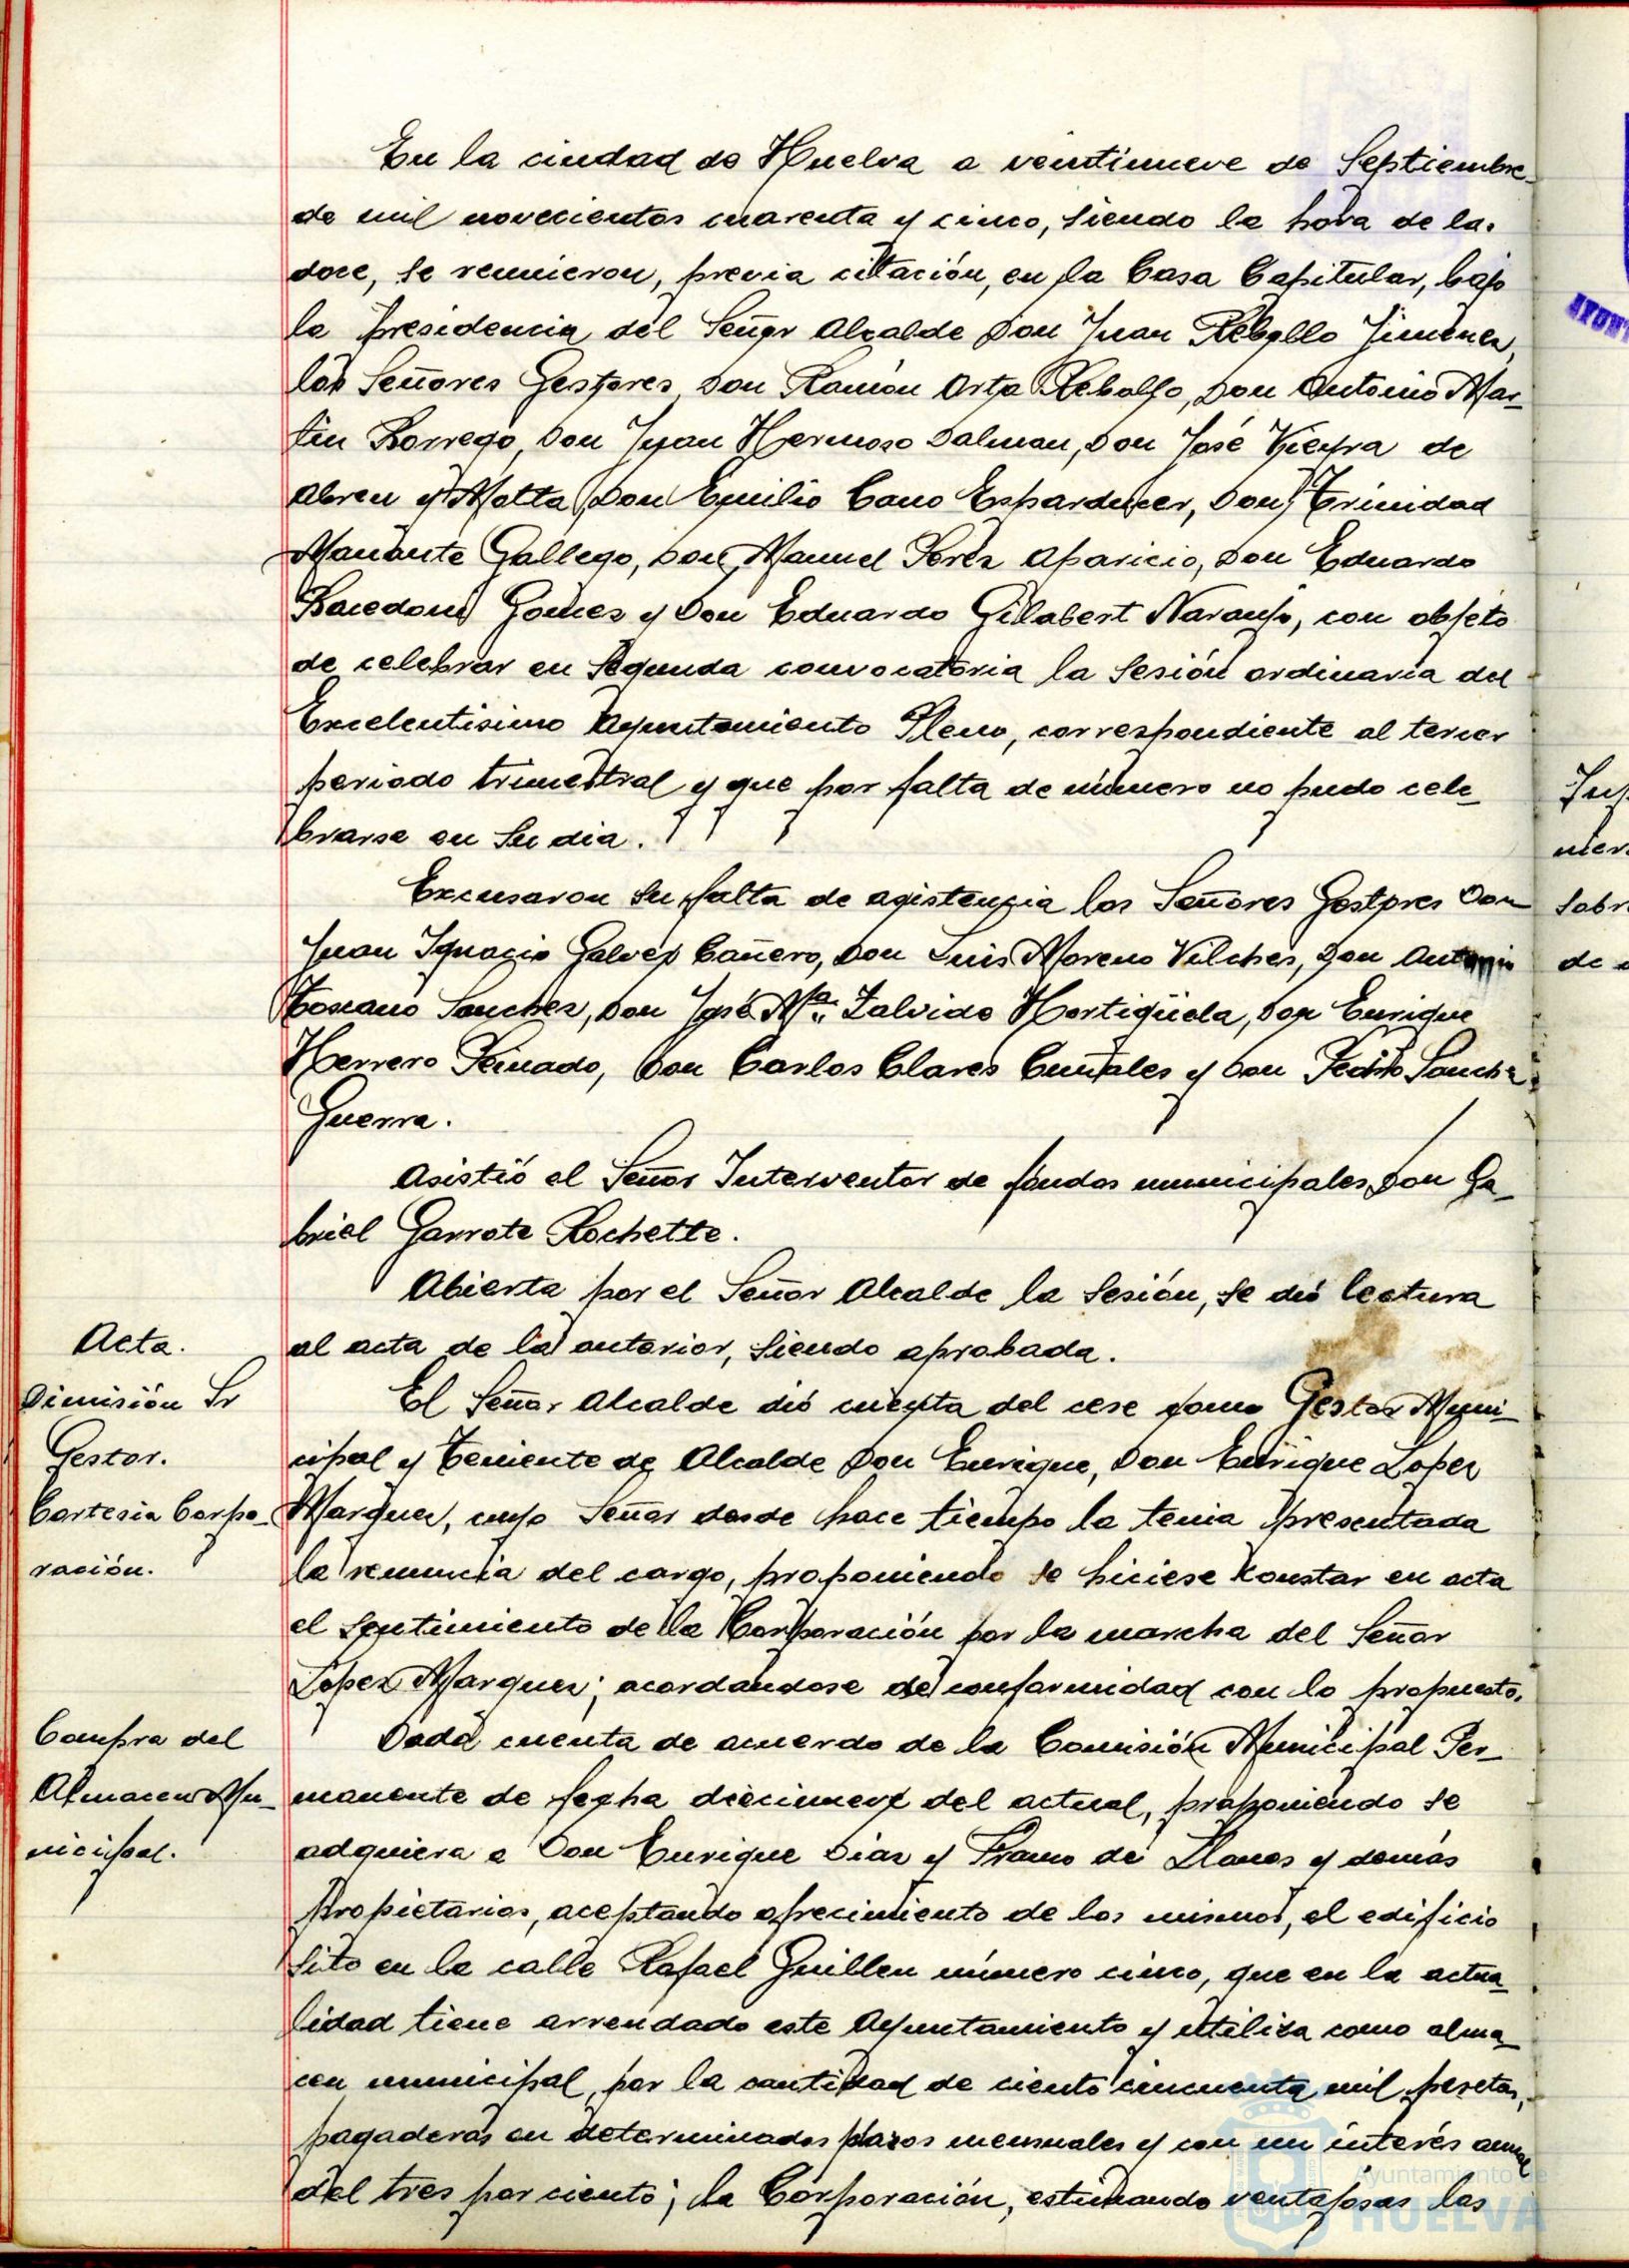 En la ciudad de Huelva a veintinueve de Septiembre
de mil novecientos cuarenta y cinco, siendo la hora de las
doce, se reunieron, previa citación, en la Casa Capitular, bajo
la presidencia del Señor Alcalde Don Juan Rebollo Jimenez,
los Señores Gestores Don Ramón Orta Rebollo, Don Antonio Mar-
tin Borrego, Don Juan Hermoso Dalman, Don José Vieyra de
Abreu y Motta, Don Emilio Cano Esparducer, Don Trinidad
Manante Gallego, Don Manuel Perez Aparicio, Don Eduardo
Gomez y Don Eduardo Gilabert Naranjo, con objeto
de celebrar en segunda convocatoria la sesión ordinaria del
Excelentisimo Ayuntamiento Pleno, correspondiente al tercer
periodo trimestral y que por falta de número no pudo cele-
brarse en su dia.
Excusaron su falta de asistencia los Señores Gestores Don
Juan Ignacio Galvez Cañero, Don Luis Moreno Vilches, Don Antonio
Toscano Sanchez, Don José Mª Zalvide Hortigüela, Don Enrique
Herrero Peinado, Don Carlos Clares y Don Pedro Sanchez
Guerra.
Asistió el Señor Interventor de fondos municipales Don Ga-
briel Garrote Rochette.
Abierta por el Señor Alcalde la sesión, se dió lectura
Acta.
al acta de la anterior, siendo aprobada.
Dimisión Sr
El Señor Alcalde dió cuenta del cese como Gestor Muni-
Gestor.
cipal y Teniente de Alcalde Don Enrique, Don Enrique Lopez
Cortesia Corpo-
Marquez, cuyo Señor desde hace tiempo la tenia presentada
ración.
la renuncia del cargo, proponiendo se hiciese constar en acta
el sentimiento de la Corporación por la marcha del Señor
Lopez Marquez; acordandose de conformidad con lo propuesto.
Compra del
Dada cuenta de acuerdo de la Comisión Municipal Per-
Almacen Mu-
manente de fecha diecinueve del actual, proponiendo se
nicipal.
adquiera a Don Enrique Diaz y Franco de Llanos y demás
propietarios, aceptando ofrecimiento de los mismos, el edificio
sito en la calle Rafael Guillen número cinco, que en la actua-
lidad tiene arrendado este Ayuntamiento y utiliza como alma-
cen municipal, por la cantidad de ciento cincuenta mil pesetas,
pagaderas en determinados plazos mensuales y con un interés anual
del tres por ciento; la Corporación, estimando ventajosas las
Ayuntamiento de
HUELVA